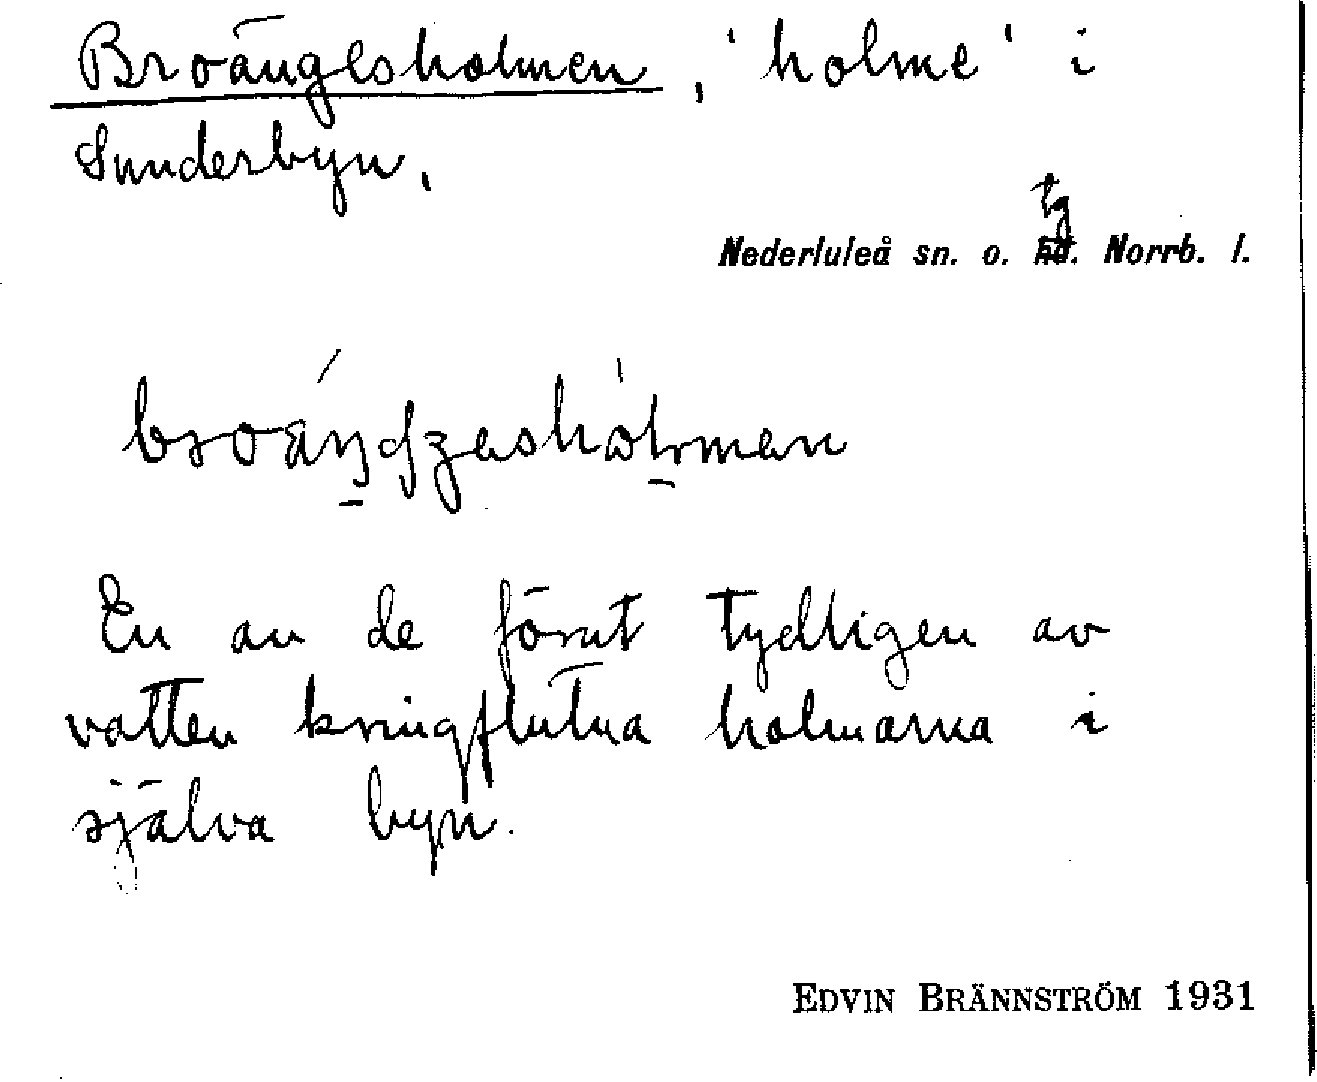 Broängesholmen, 'holme' i
Sunderbyn.
tg
Nederluleå sn. o. hd. Norrb. l.
En av de förut tydligen av
vatten kringflutna holmarna i
själva byn.
EDVIN BRÄNNSTRÖM 1931